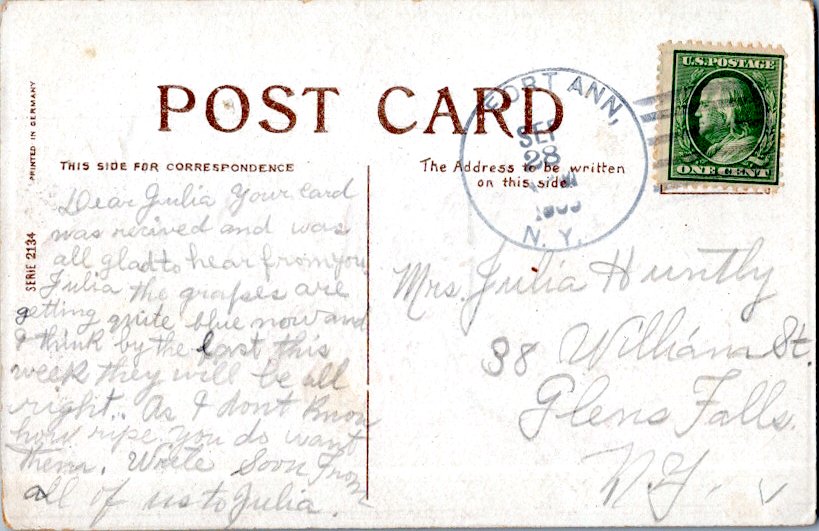 POST CARD
PRINTED IN GERMANY
SERIE 2134
THIS SIDE FOR CORRESPONDENCE
The Address to be written
on this side.
FORT ANN,
SEP
28
N. Y.
U.S. POSTAGE
ONE CENT
Dear Julia Your card
was recived and was
all glad to hear from you
Julia the grapes are
getting quite blue now and
I think by the last this
week they will be all
right.. As I dont know
how ripe you do want
them. Write Soon From
all of us to Julia.
Mrs. Julia Huntly
38 William St.
Glens Falls
N.Y.